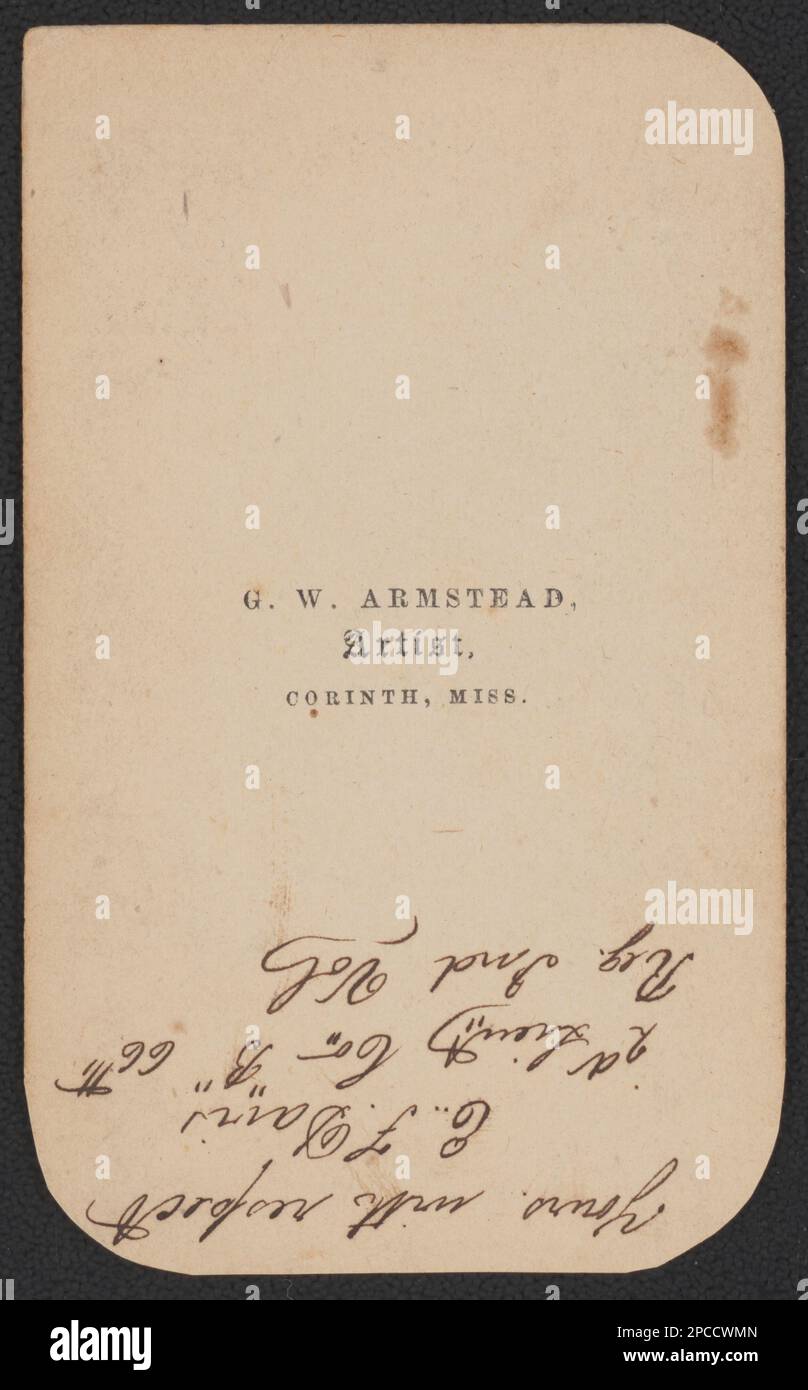 G. W. ARMSTEAD,
Artist,
CORINTH, MISS.
Yours with respect
E. F. Davis
2d Lieut Co "B" 66th
Reg. Ind Vols
alamy
Image ID: 2PCCWMN
www.alamy.com